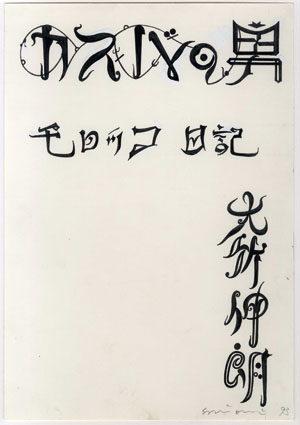 カスバの男
モロッコ 日記
大竹伸朗
93